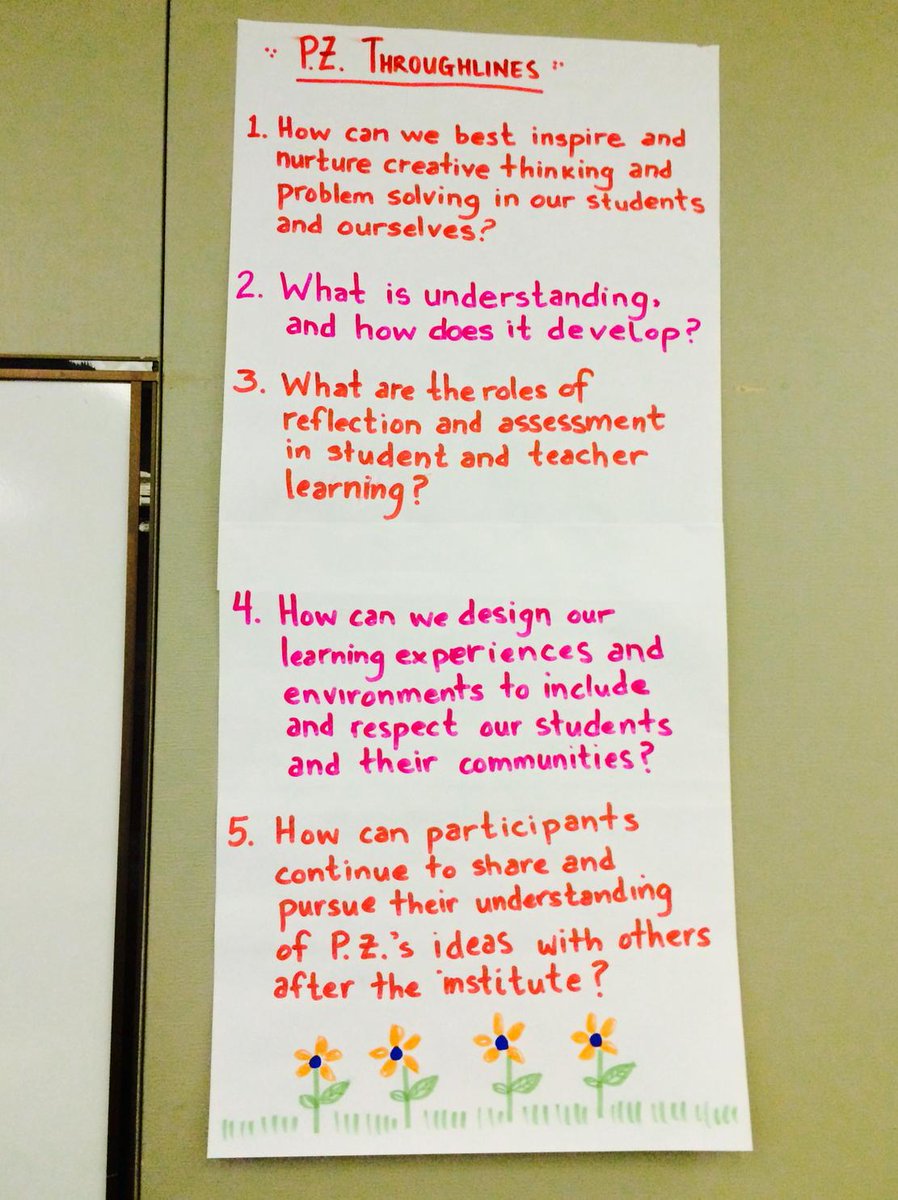 P.Z. THROUGHLINES
1. How can we best inspire and
nurture creative thinking and
problem solving in our students
and ourselves?
2. What is understanding,
and how does it develop?
3. What are the roles of
reflection and assessment
in student and teacher
learning?
4. How can we design our
learning experiences and
environments to include
and respect our students
and their communities?
5. How can participants
continue to share and
pursue their understanding
of P.Z.'s ideas with others
after the institute?